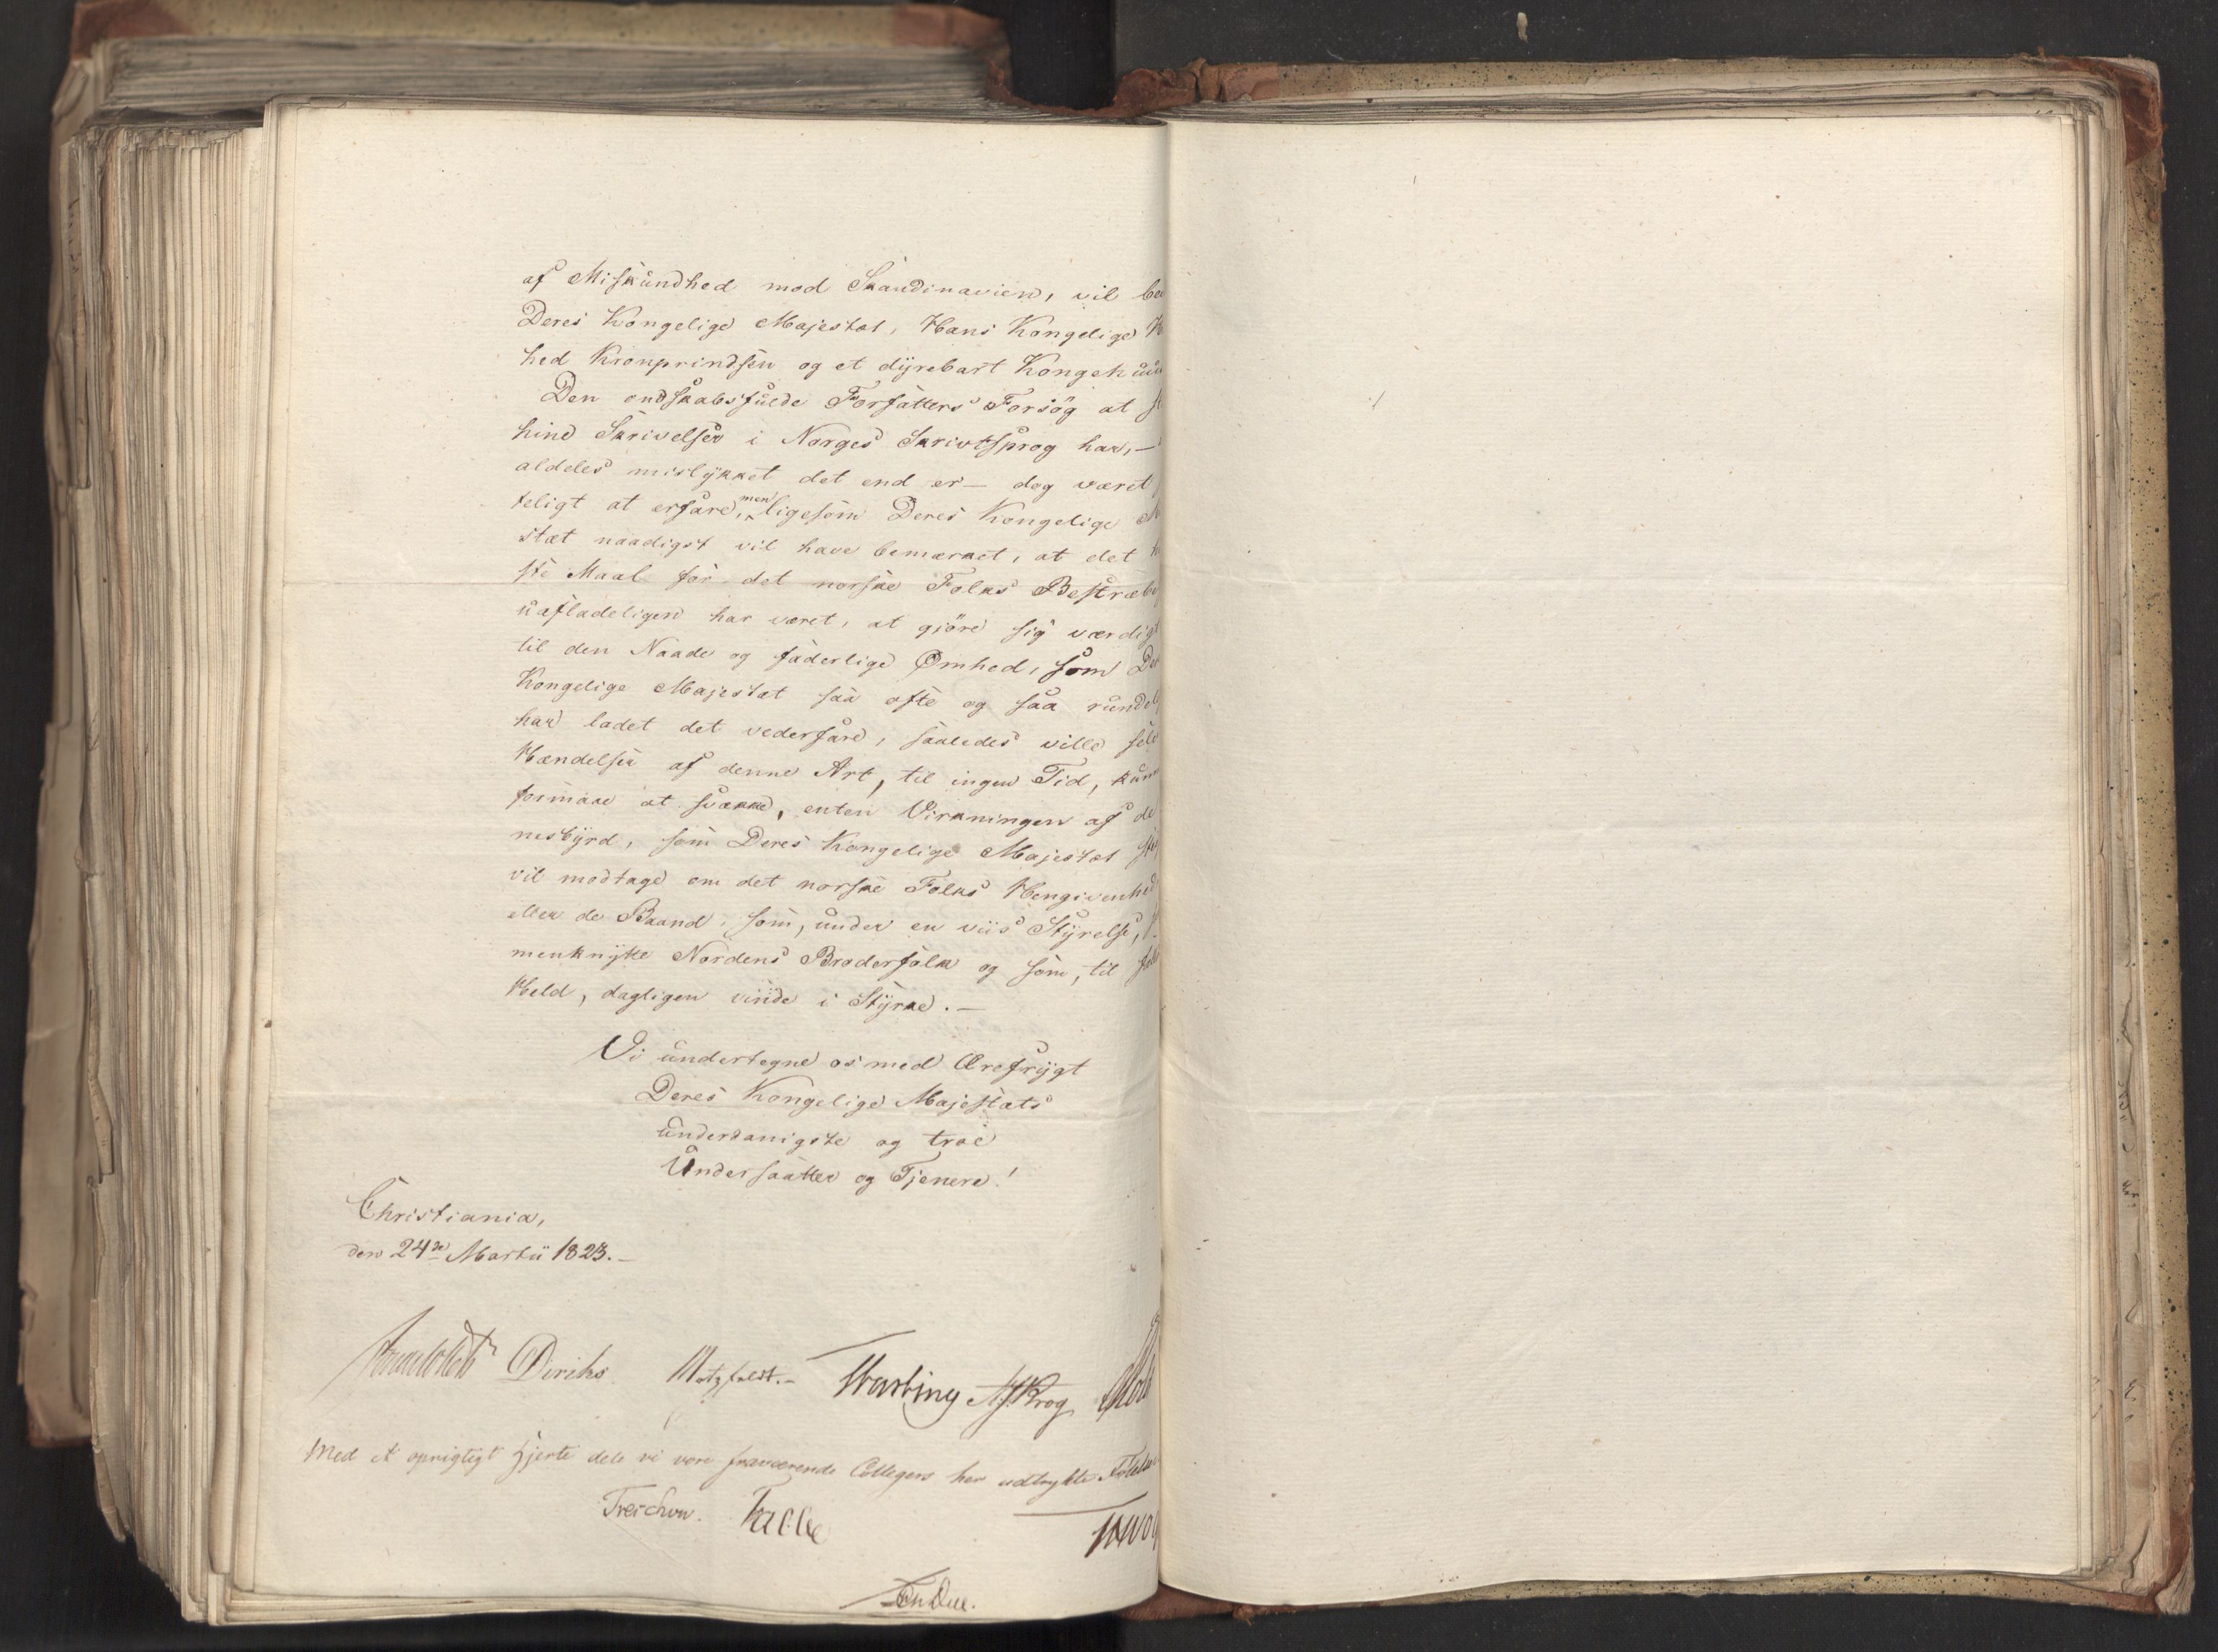 af Miskundhed mod Skandinavien, vil be
Deres Kongelige Majestæt, Hans Kongelige H
hed Kronprindsen og et dyrebart Kongehuu
Den ondskabsfulde Forfatters Forsøg at
hine Skrivelser i Norges Skrivtsprog har, –
aldeles mislykket det end er – dog været
teligt at erfare, men ligesom Deres Kongelige M
stæt naadigst vil have bemærket, at det h
ste Maal for det norske Folks Bestræbe
uafladeligen har været, at gjöre sig værdigt
til den Naade og faderlige Ømhed, som De
Kongelige Majestæt saa ofte og saa rundel
har ladet det vederfare, saaledes ville sel
Hændelser af denne Art, til ingen Tid, kun
formaae at svække, enten Virkningen af de
nesbyrd, som Deres Kongelige Majestæt ste
vil modtage om det norske Folks Hengivenhed
eller de Baand, som, under en viis Styrelse,
menknytte Nordens Broderfolk og som, til
Held, dagligen vinde i Styrke. –
Vi undertegne os med Ærefrygt
Deres Kongelige Majestæts
underdanigste og troe
Undersaatter og Tjenere!
Christiania,
den 24de Martii 1823. –
Diriks Motzfeldt. – Krog
Med et oprigtigt Hjerte dele vi vore fraværende Collegers her udtrykte Følelser
Treschow. Falbe
Due.